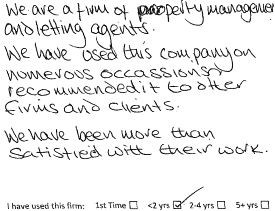 We are a firm of property managemen
and letting agents.
We have used this company on
numerous occassions &
recommended it to other
firms and clients.
We have been more than
satisfied with their work.
I have used this firm: 1st Time ☐ <2 yrs ☑ 2-4 yrs ☐ 5+ yrs ☐